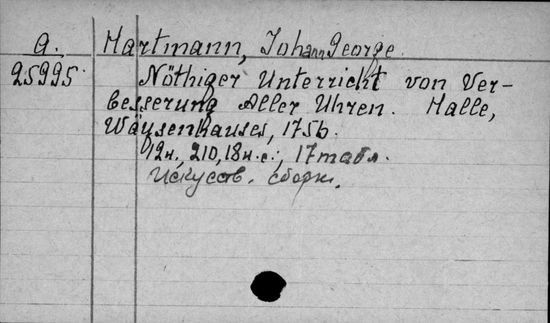 a. Hartmann, Johann George.
25995. Nöthiger Unterricht von Ver-
besserung Aller Uhren. Halle,
Wäysenhauses, 1756.
12н., 210, 18н.с., 17 табл.
Искусств. сборн.